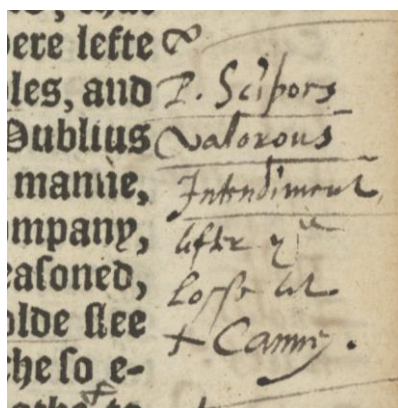 ere lefte
les, and
Publius
mpany,
eaſoned,
olde flee
che ſo e-
P. Scipors
valorous
Intendiment
after yᵉ
loſſe at
+ Canny.